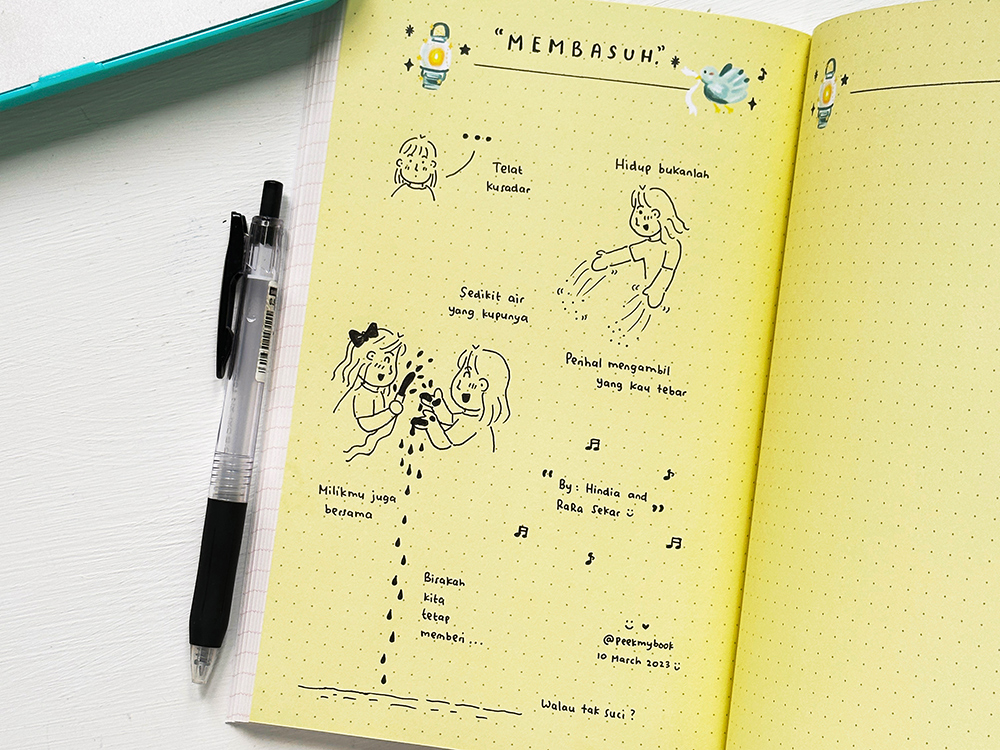 "MEMBASUH"
Telat
kusadar
Hidup bukanlah
Perihal mengambil
yang kau tebar
Sedikit air
yang kupunya
Milikmu juga
bersama
Bisakah
kita
tetap
memberi...
Walau tak suci?
"By: Hindia and
RaRa Sekar"
@peekmybook
10 March 2023